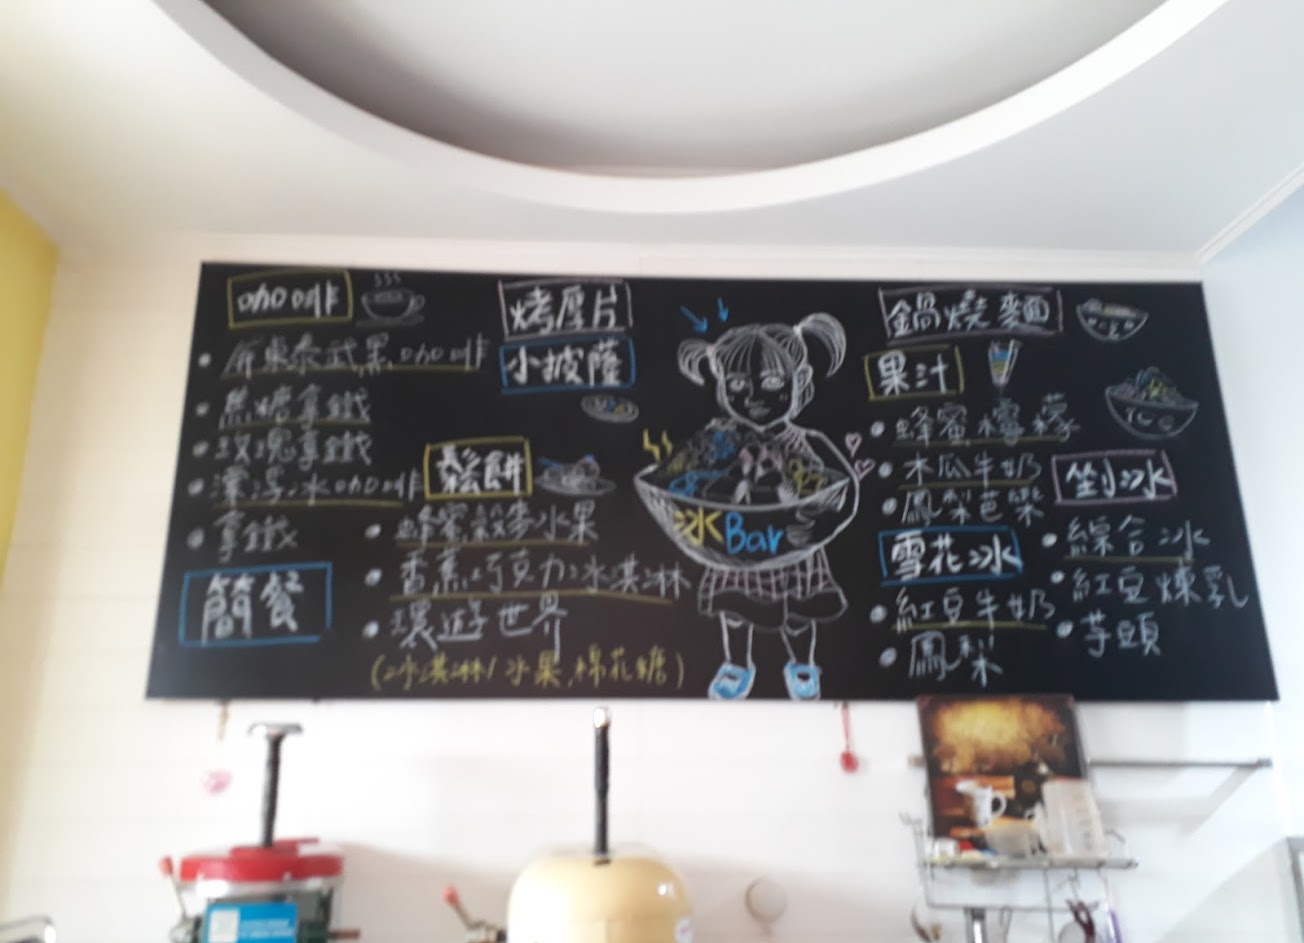 咖啡
屏東泰武黑咖啡
焦糖拿鐵
玫瑰拿鐵
漂浮冰咖啡
拿鐵
簡餐
烤厚片
小披薩
鬆餅
蜂蜜穀麥水果
香蕉巧克力冰淇淋
環遊世界
(冰淇淋/水果、棉花糖)
冰Bar
鍋燒麵
果汁
蜂蜜檸檬
木瓜牛奶
鳳梨芭樂
雪花冰
紅豆牛奶
鳳梨
剉冰
綜合冰
紅豆煉乳
芋頭